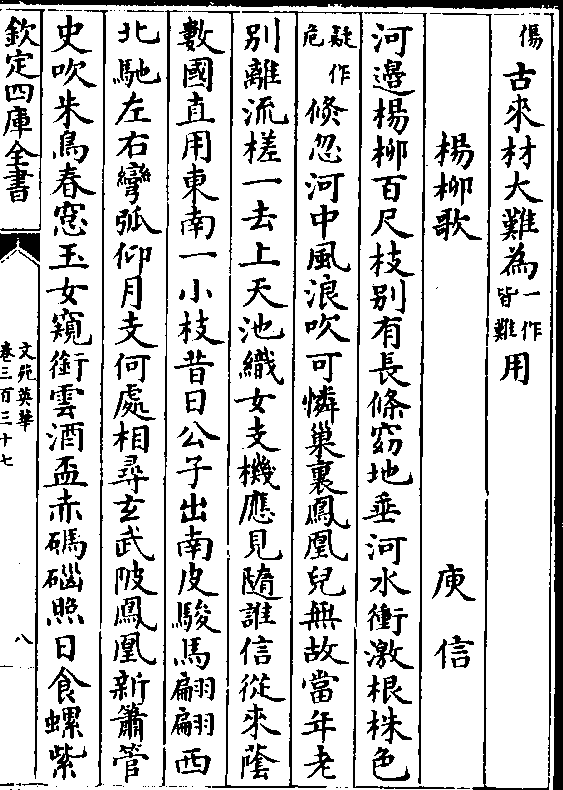 傷古來材大難為一作皆難用
楊柳歌 庾信
河邊楊柳百尺枝别有長條窈地垂河水衝激根株色
疑作危倐忽河中風浪吹可憐巢裏鳳凰兒無故當年老
别離流槎一去上天池織女支機應見隨誰信從來蔭
數國直用東南一小枝昔日公子出南皮駿馬翩翩西
北馳左右彎弧仰月支何處相尋玄武陂鳳凰新簫管
史吹朱鳥春窓玉女窺銜雲酒盃赤碼碯照日食螺紫
欽定四庫全書
文苑英華
卷三百三十七
八